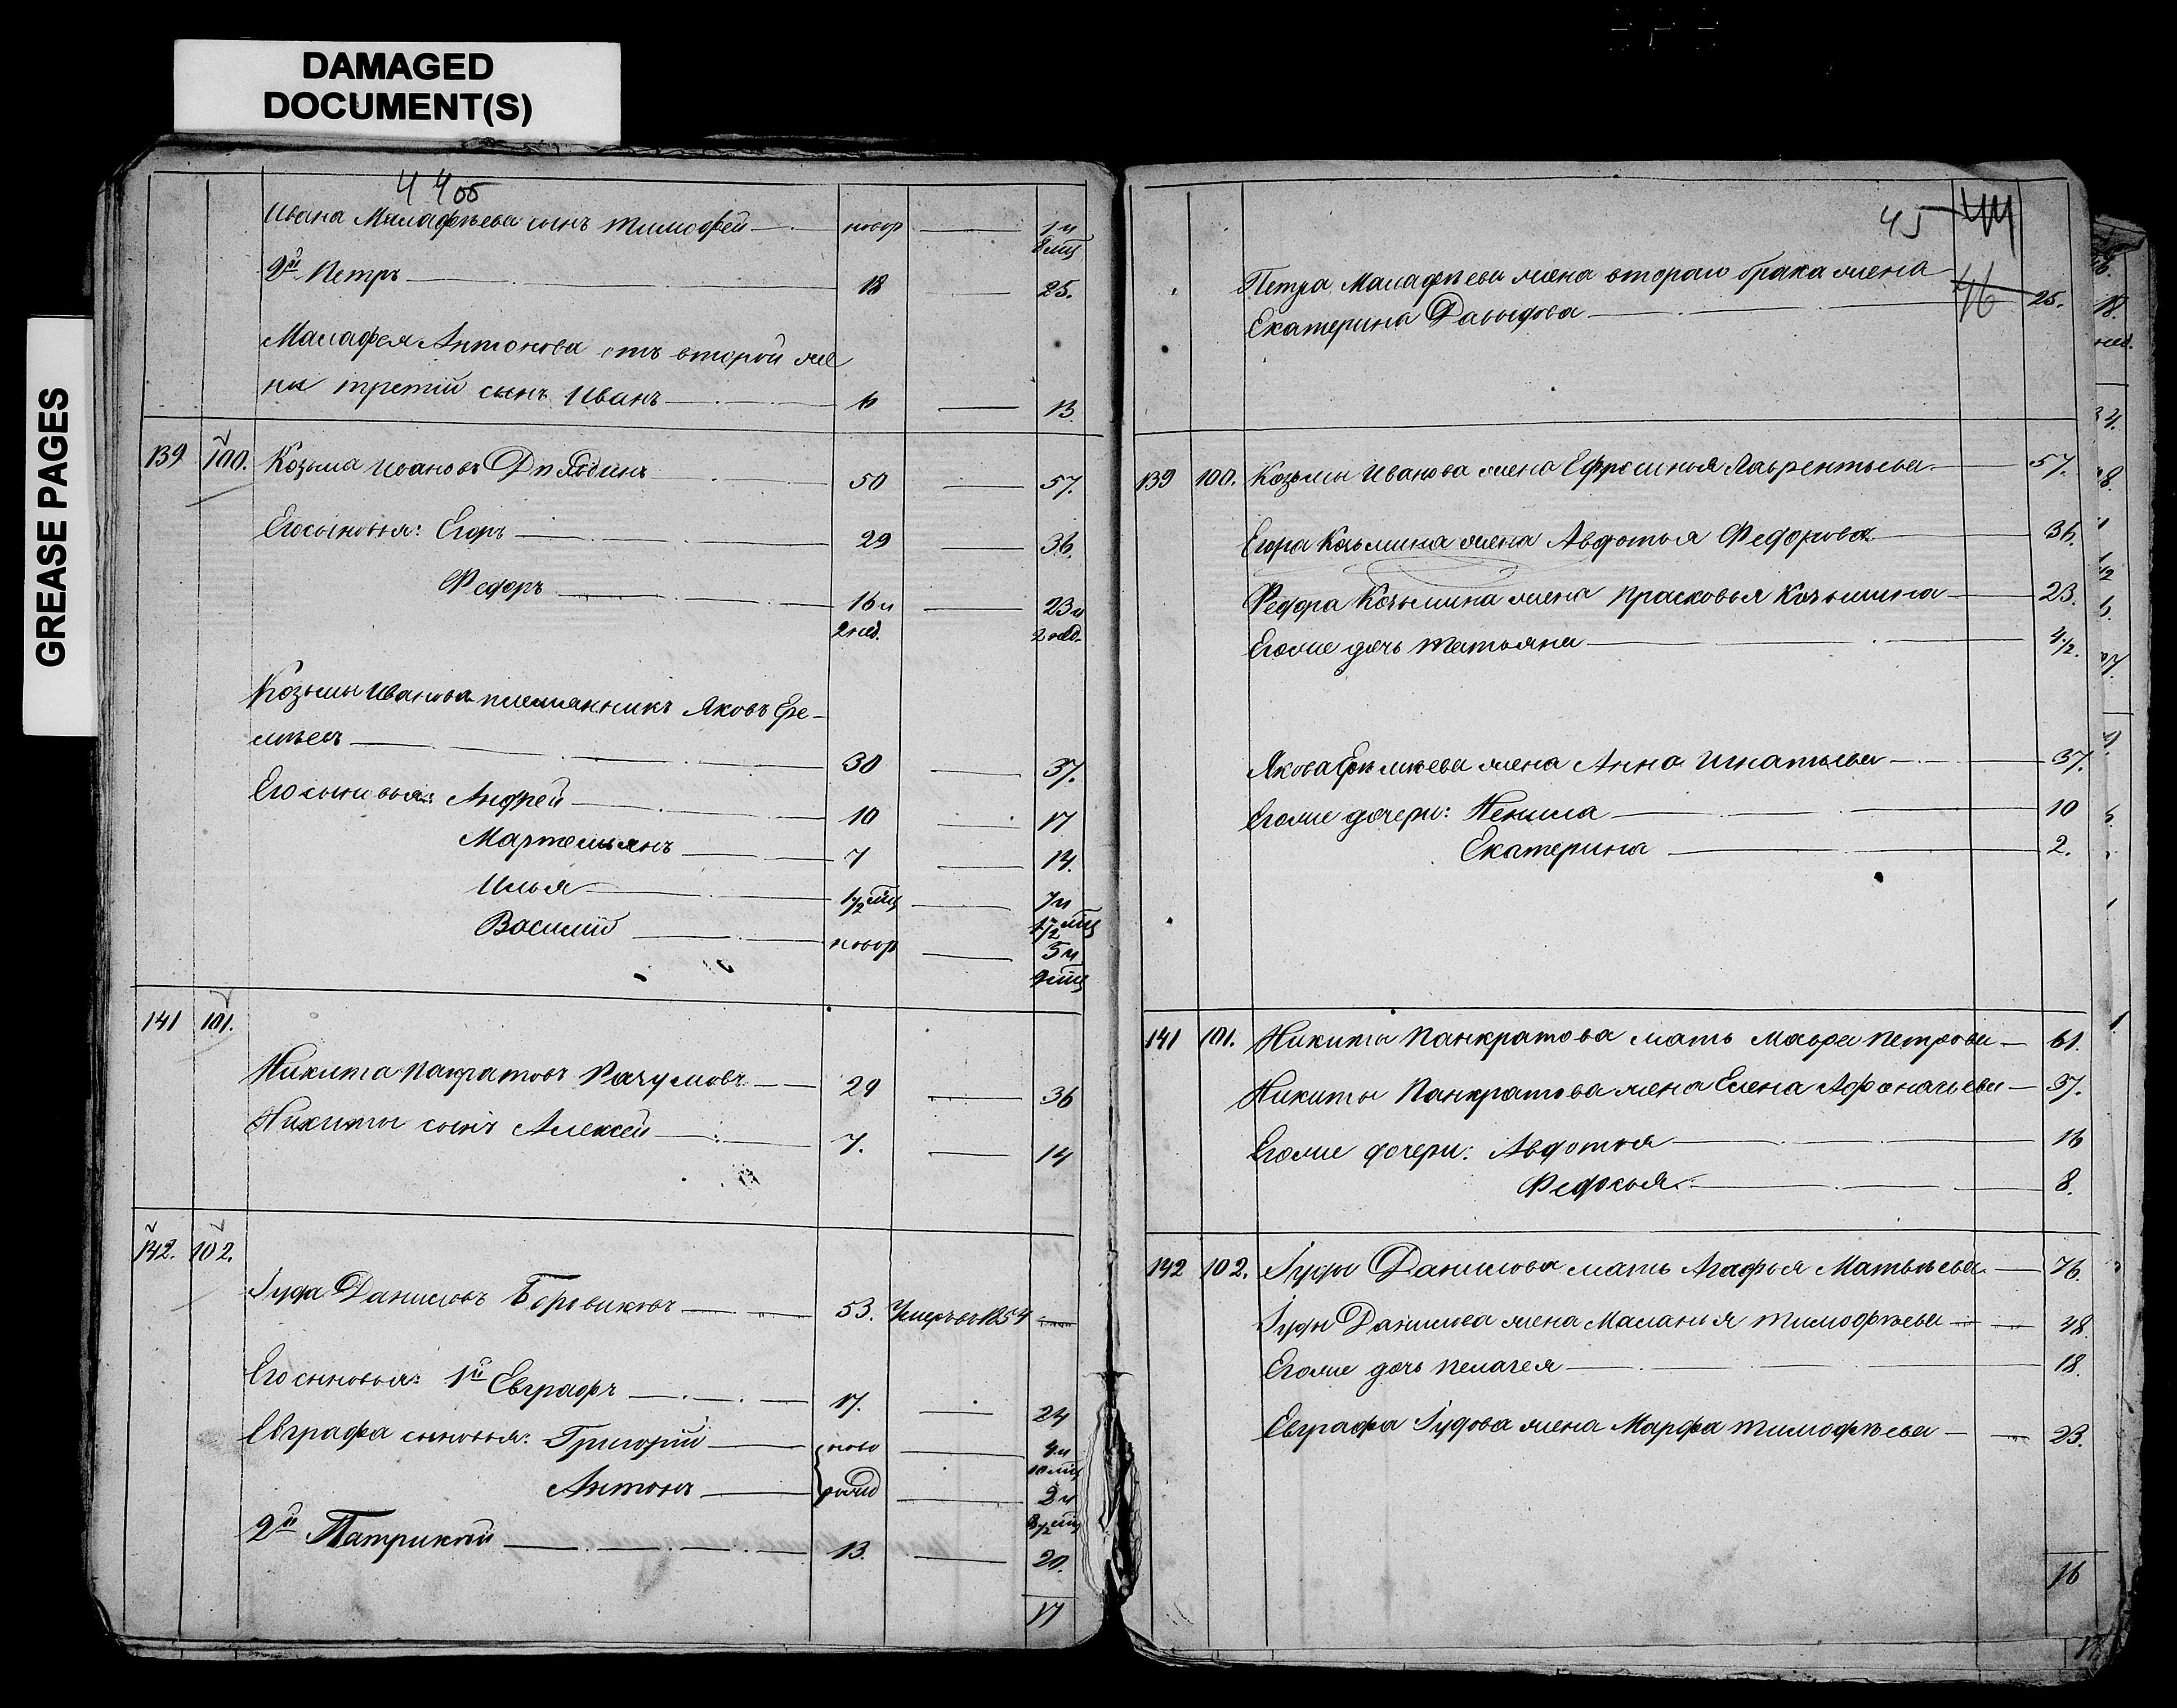 DAMAGED
DOCUMENT(S)
GREASE PAGES
44 об
Ивана Малафѣева сынъ Тимофей новор 1 и
8 мц
2й Петръ 18 25.
Малафея Антонова отъ второй же
ны третій сынъ Иванъ 6 13.
139 100. Козьма Ивановъ 50 57.
Его сыновья: Егоръ 29 36.
Федоръ 16 и 23 и
2 нед. 2 нед.
Козьмы Иванова племянникъ Яковъ Ере-
мѣевъ 30 37.
Его сыновья: Андрей 10 17
Мартемьянъ 7 14.
Илья 1/2 мц 7 и
1/2 мц
Василій новор 5 и
9 мц
141 101.
Никита Панкратовъ Разумовъ 29 36
Никиты сынъ Алексей 7. 14
142. 102.
Іуда Даниловъ Боровиковъ 53. Умеръ въ 1854
Его сыновья: 1й Евграфъ 17. 24
Евграфа сыновья: Григорій ново 4 и
10 мц
Антонъ рожд 2 и
3 1/2 мц
2й Патрикей 13. 20.
17
45 44
46
Петра Малафѣева жена втораго брака жена
Екатерина Давыдова 25.
139 100. Козьмы Иванова жена Ефросинья Лаврентьева 57.
Егора Козьмина жена Авдотья Федорова 36.
Федора Козьмина жена Прасковья Козьмина 23.
Егоже дочь Татьяна 4 1/2.
Якова Еремѣева жена Анна Игнатьева 37.
Егоже дочери: Ненила 10
Екатерина 2.
141 101. Никиты Панкратова мать Мавра Петрова 61.
Никиты Панкратова жена Елена Афонасьева 37.
Егоже дочери: Авдотья 16
Федосья 8.
142 102. Іуды Данилова мать Агафья Матвѣева 76.
Іуды Данилова жена Маланья Тимофѣева 48.
Егоже дочь Пелагея 18.
Евграфа Іудова жена Марфа Тимофѣева 23.
16